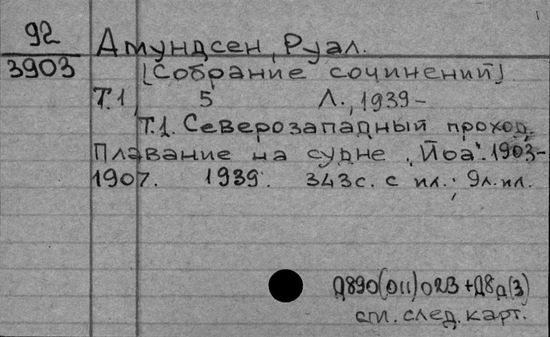 1
92
3903
Амундсен, Руал.
[Собрание сочинений].
Т.1, 5 Л., 1939-
Т.1. Северозападный проход.
Плавание на судне „Йоа“. 1903-
1907. 1939. 343с. с ил.; 9л. ил.
Д890(011)023+Д8д(3)
см. след. карт.